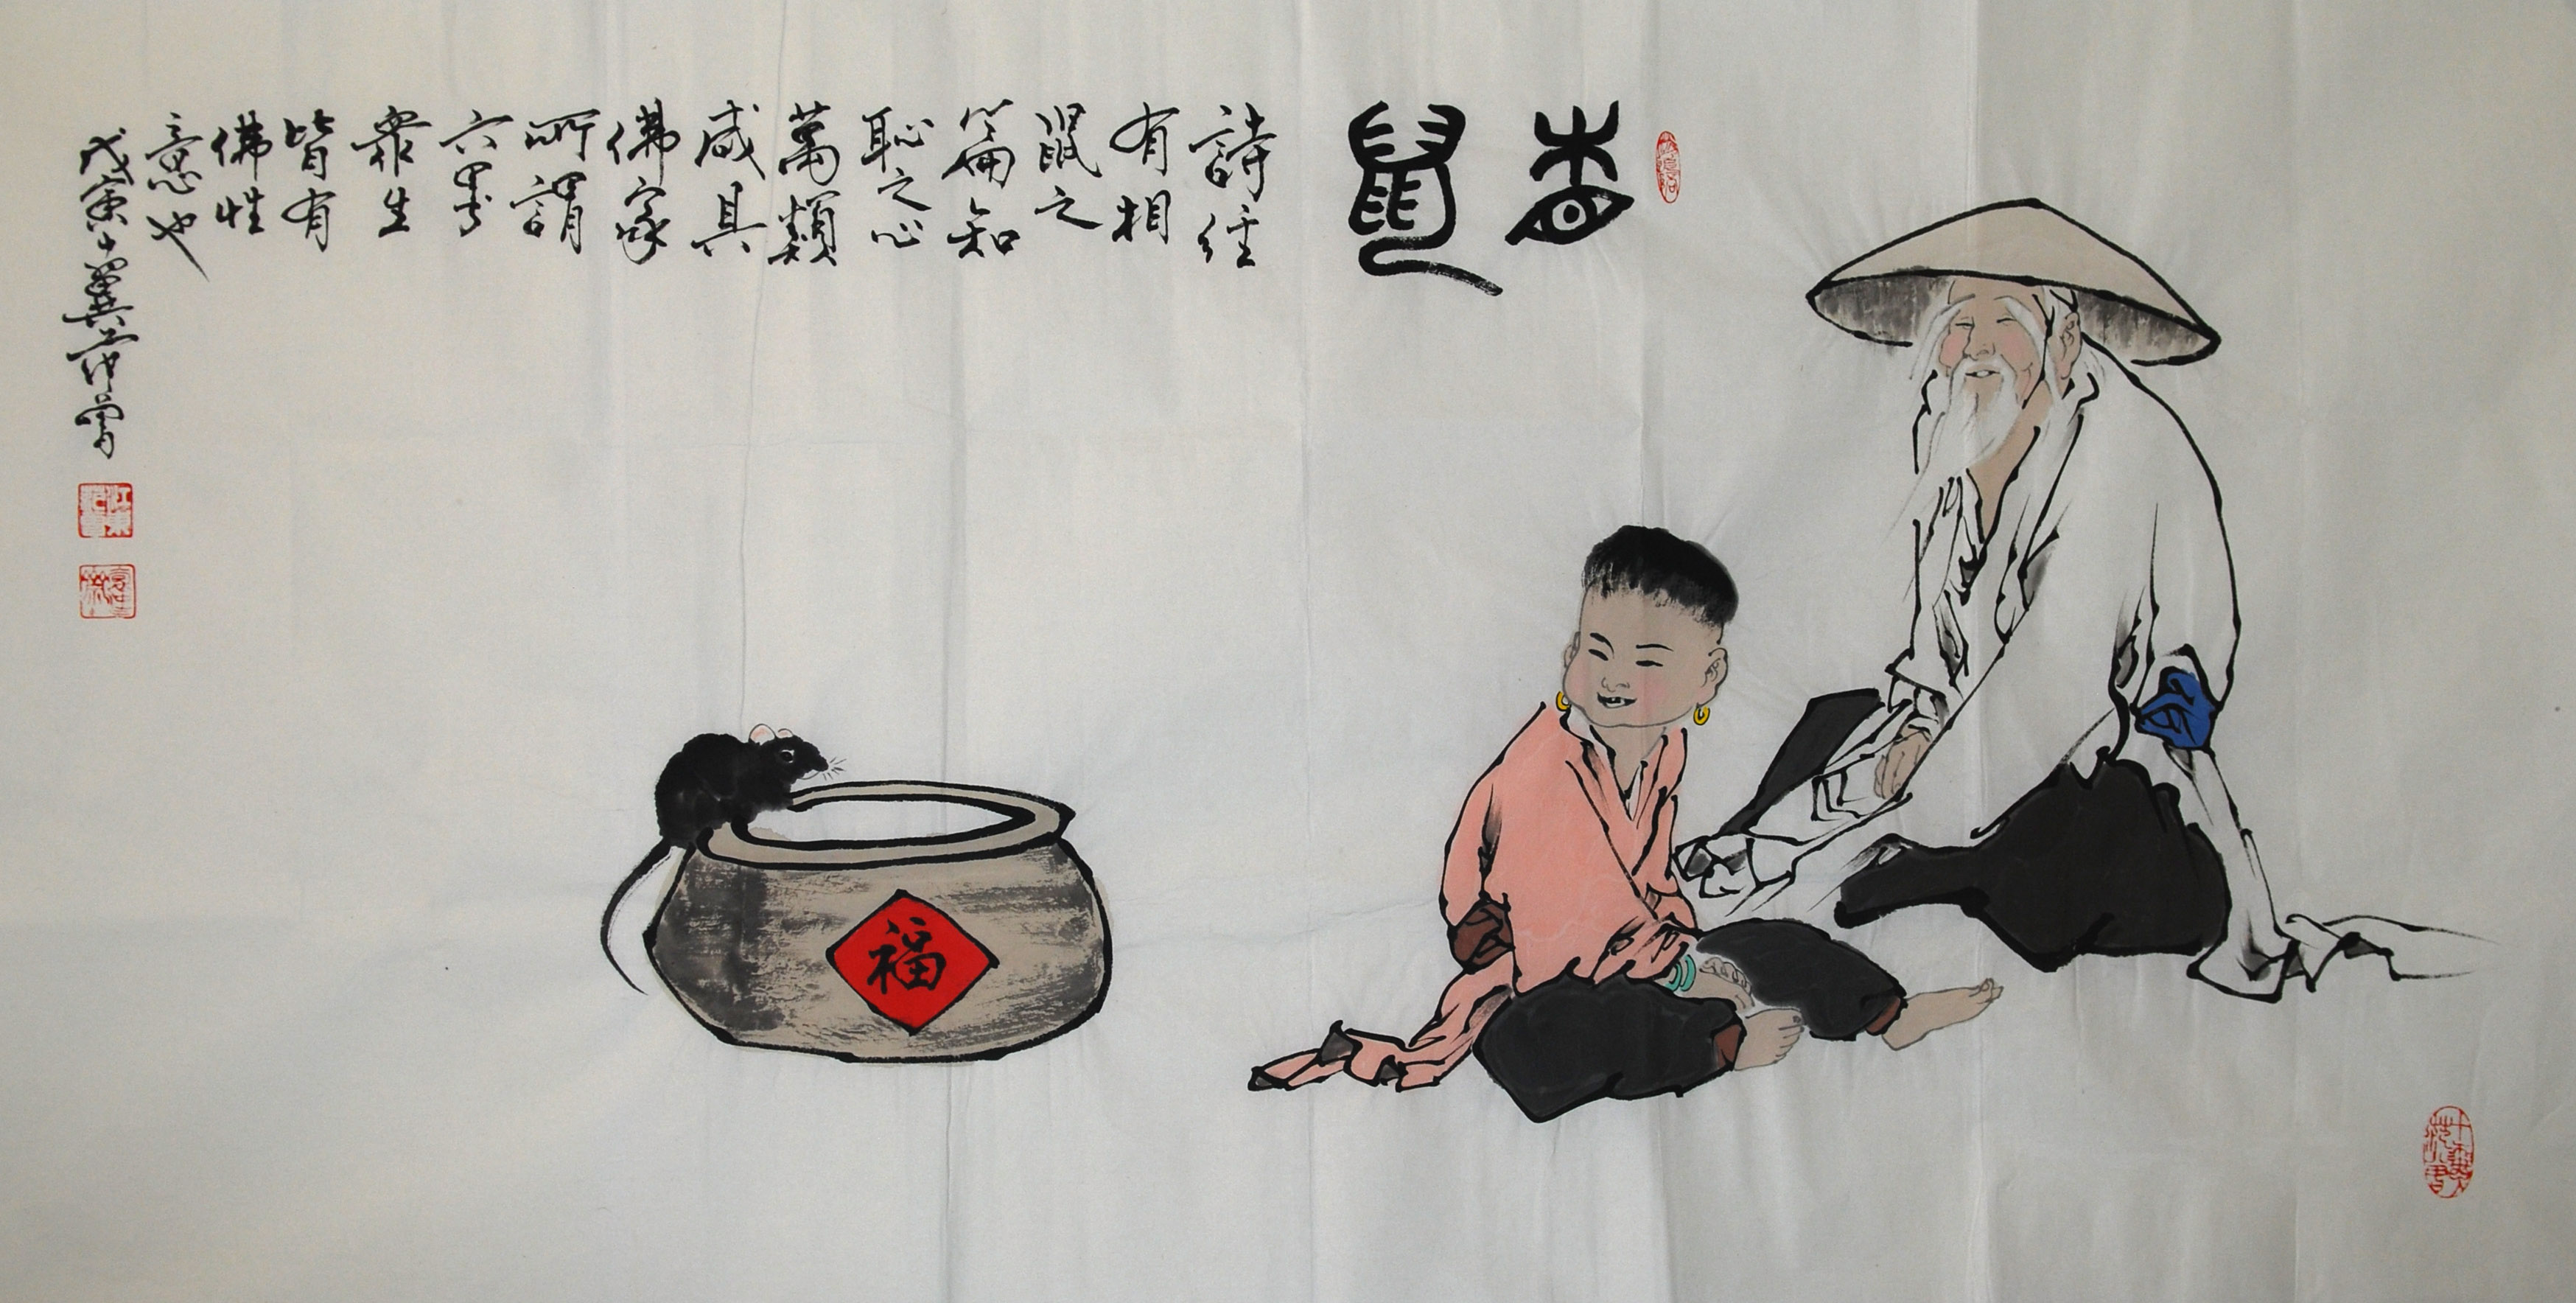 相鼠
詩經
有相
鼠之
篇知
恥之心
萬類
咸具
佛家
所謂
六
衆生
皆有
佛性
意也
戊寅十翼范曾
福